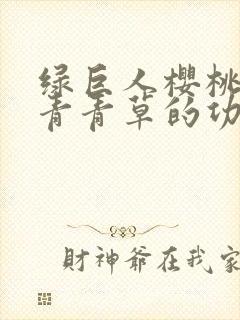 绿巨人樱桃
青青草的功
财神爷在我家